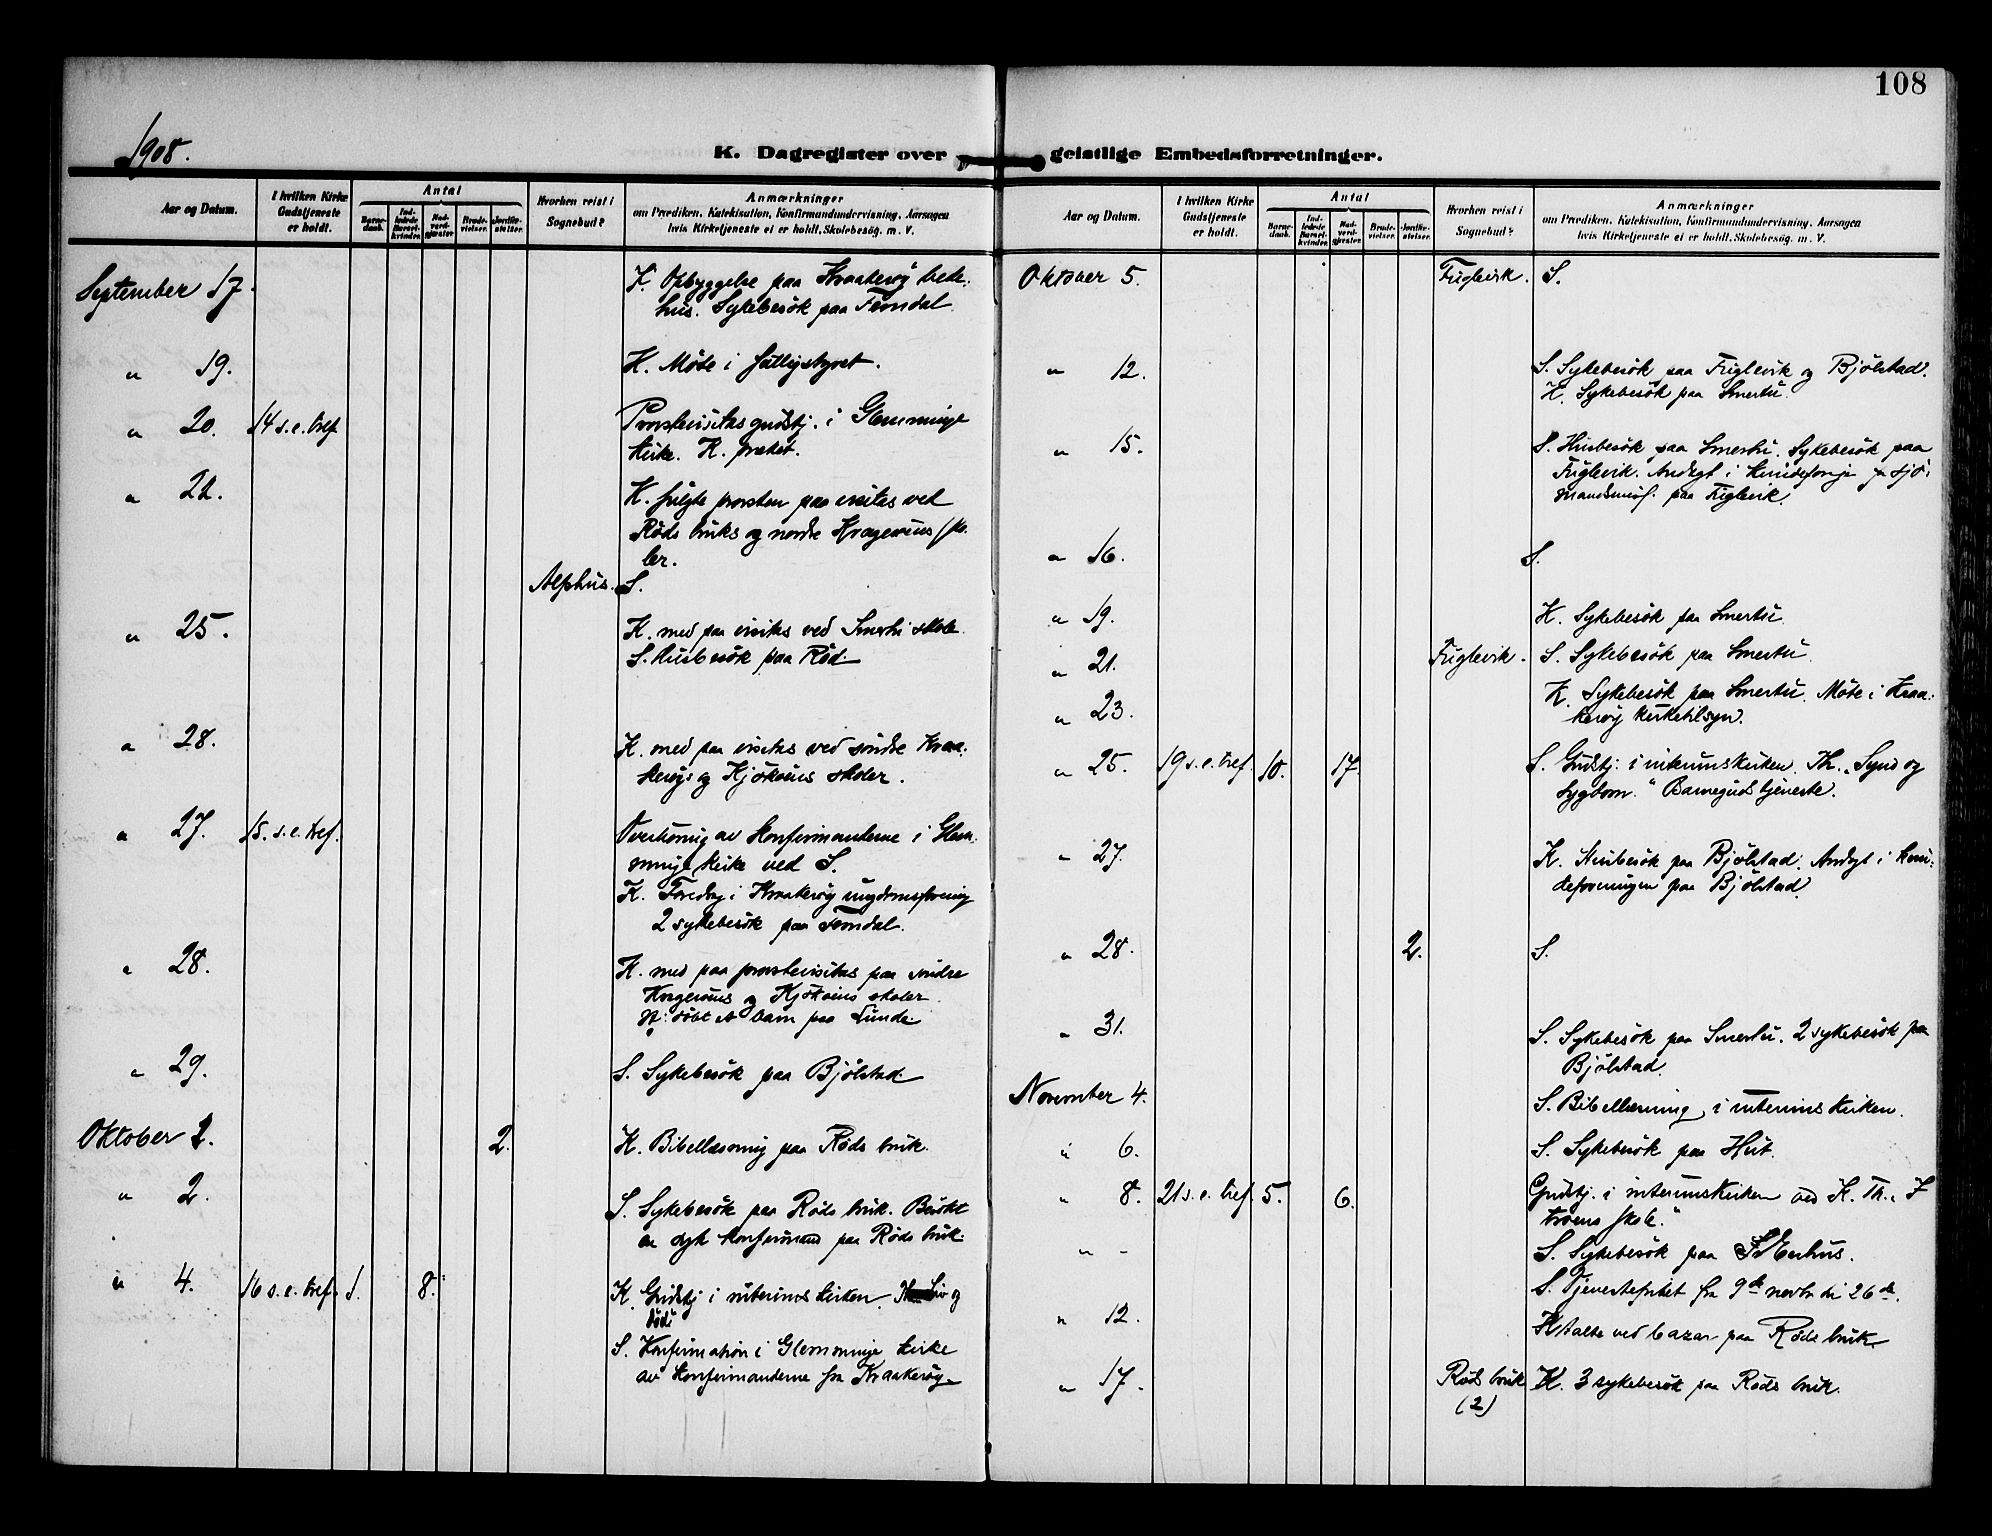 108
1908.
K. Dagregister over geistlige Embedsforretninger.
Aar og Datum.
I hvilken Kirke Gudstjeneste er holdt.
Antal
Barne-daab.
Ind-ledede Barsel-kvinder.
Nad-verd-gjæster.
Brude-vielser.
Jordfæ-stelser.
Hvorhen reist i Sognebud?
Anmærkninger
om Prædiken, Katekisation, Konfirmandundervisning, Aarsagen
hvis Kirketjeneste ei er holdt, Skolebesøg. m. V.
September 17. K. Opbyggelse paa Kraakerøy bede-
hus. Sykebesök paa Femdal.
" 19. K. Möte i fattigstyret.
" 20. 14 s. e. tref Prostevisitasgudstj. i Glemminge
kirke. K. prækte.
" 22. K. fulgte prosten paa visitas ved
Røds bruks og nordre Kragerøens sko-
ler.
Alshus. S.
" 25. K. med paa visitas ved Smertu skole.
S. Husbesök paa Rød.
" 28. K. med paa visitas ved søndre Kraa-
kerøys og Kjøkøens skoler.
" 27. 15. s. e. tref. Overhøring av konfirmanderne i Glem-
minge kirke ved S.
K. Foredrag i Kraakerøy ungdomsforening
2 sykebesök paa Femdal.
" 28. K. med paa prostevisitas paa søndre
og Kjøkøens skoler.
döbt et barn paa Lunde.
" 29. S. Sykebesök paa Bjølstad.
Oktober 2. 2. K. Bibellæsning paa Røds bruk.
" 2. S. Sykebesök paa Røds bruk. Besökt
en syk konfirmand paa Røds bruk.
" 4. 16 s. e. tref. 1. 8. K. Gudstj i interimskirken. Liv og
död
S. Konfirmation i Glemminge kirke
av konfirmanderne fra Kraakerøy.
Aar og Datum.
I hvilken Kirke Gudstjeneste er holdt.
Antal
Barne-daab.
Ind-ledede Barsel-kvinder.
Nad-verd-gjæster.
Brude-vielser.
Jordfæ-stelser.
Hvorhen reist i Sognebud?
Anmærkninger
om Prædiken, Katekisation, Konfirmandundervisning, Aarsagen
hvis Kirketjeneste ei er holdt, Skolebesøg. m. V.
Oktober 5. Fuglevik. S.
" 12. S. Sykebesök paa Fuglevik og Bjølstad.
K. Sykebesök paa Smertu.
" 15. S. Husbesök paa Smertu. Sykebesök paa
Fuglevik. Andagt i kvindeforenig f. sjö-
mandsmis. paa Fuglevik.
" 16. S.
" 19. K. Sykebesök paa Smertu.
" 21. Fuglevik. S. Sykebesök paa Smertu.
" 23. K. Sykebesök paa Smertu. Möte i Kraa-
kerøy kirketilsyn.
" 25. 19 s. e. tref. 10. 17. S. Gudstj. i interimskirken. Th. "Synd og
sygdom." Barnegudstjeneste.
" 27. K. Husbesök paa Bjølstad. Andagt i kvin-
deforeningen paa Bjølstad.
" 28. 2. S.
" 31. S. Sykebesök paa Smertu. 2 sykebesök paa
Bjølstad.
November 4. S. Bibellæsning i interimskirken.
" 6. S. Sykebesök paa Hut.
" 8. 21 s. e. tref. 5. 6. Gudstj. i interimskirken ved K. Th. "I
troens skole."
" - S. Sykebesök paa Enhus.
S. Tjenestefrihet fra 9de novbr til 26de.
" 12. K talte ved bazar paa Røds bruk.
" 17. Røds bruk K. 3 sykebesök paa Røds bruk.
(2)